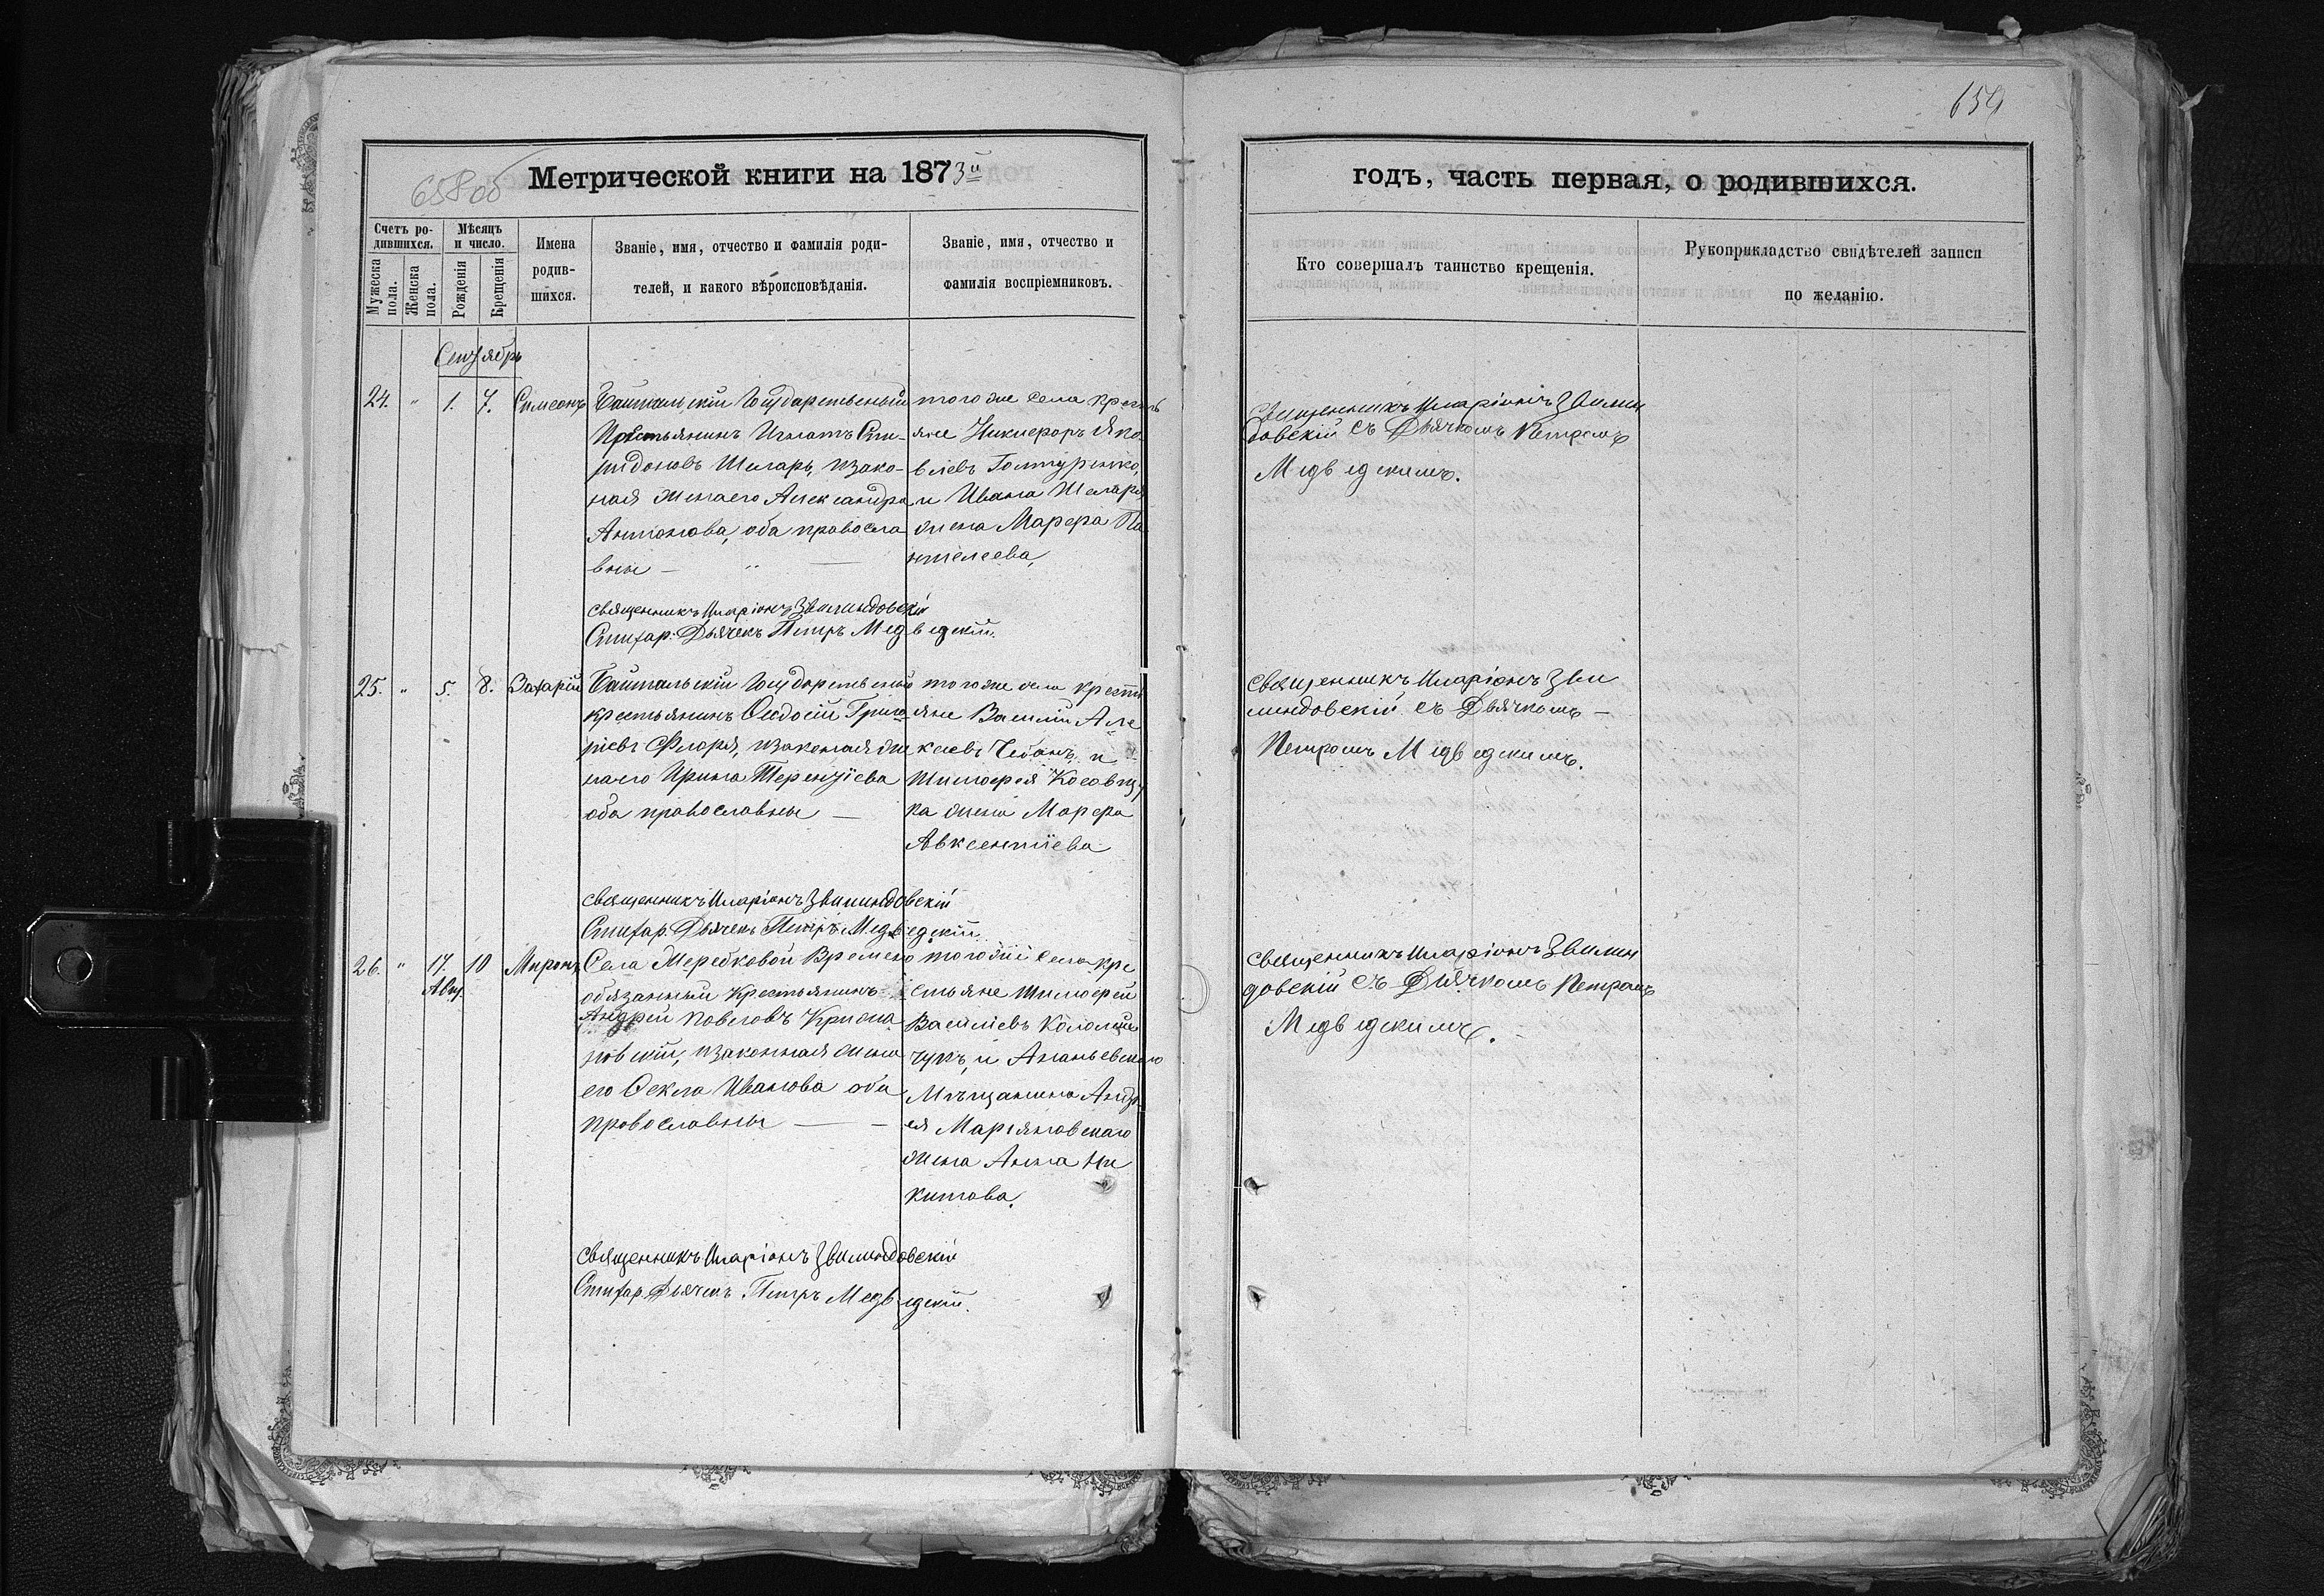 658 об
Метрической книги на 1873й
Счетъ ро-
дившихся.
Мужеска
пола.
Женска
пола.
Мѣсяцъ
и число.
Рожденія
Крещенія
Имена
родив-
шихся.
Званіе, имя, отчество и фамилія роди-
телей, и какого вѣроисповѣданія.
Званіе, имя, отчество и
фамилія воспріемниковъ.
Сентябрь
24. „ 1. 7. Симеонъ
Байтальскій Государственный
Крестьянинъ Игнатъ Спи-
ридоновъ Шкларь, изако-
ная жена его Александра
Антонова, оба правосла
вны — „ —
того же села кресть
яне Никифоръ Яко
влевъ
и Ивана
жена Марфа Па
нтелеева,
священникъ Иларіонъ Звилиндовскій
Стихар. Дьячекъ Петръ Медведскій.
25. „ 5. 8. Захарій
Байтальскій Государственый
крестьянинъ Ѳеодосій Григо
ріевъ Флоря, изаконая же
на его Ирина Терентіева
оба православны —
того же села кресть
яне Василій Але
ксеевъ Чебанъ, и
Тимофея
ка жена Марфа
Авксентіева
священникъ Иларіонъ Звилиндовскій
Стихар. Дьячекъ Петръ Медведскій.
26. „ 17. 10 Миронъ
Авг.
Села Мередковой Времено
обязанный Крестьянинъ
Андрей Повловъ
ровскій, изаконная жена
его Ѳекла Иванова оба
провославны — —
того же села кре
стьяне Тимофей
Василіевъ
чукъ, и Ананьевскаго
Мѣщанина Андр
ея Маріяновскаго
жена Анна Ни
китова.
священникъ Иларіонъ Звилиндовскій
Стихар. Дьячекъ Петръ Медведскій.
659
годъ, часть первая, о родившихся.
Кто совершалъ таинство крещенія.
Рукоприкладство свидѣтелей записи
по желанію.
священникъ Иларіонъ Звилин
довскій съ Дьячкомъ Петромъ
Медведскимъ.
священникъ Иларіонъ Зви
линдовскій съ Дьячкомъ —
Петромъ Медведскимъ.
священникъ Иларіонъ Звилин
довскій съ Дьячкомъ Петромъ
Медведскимъ.